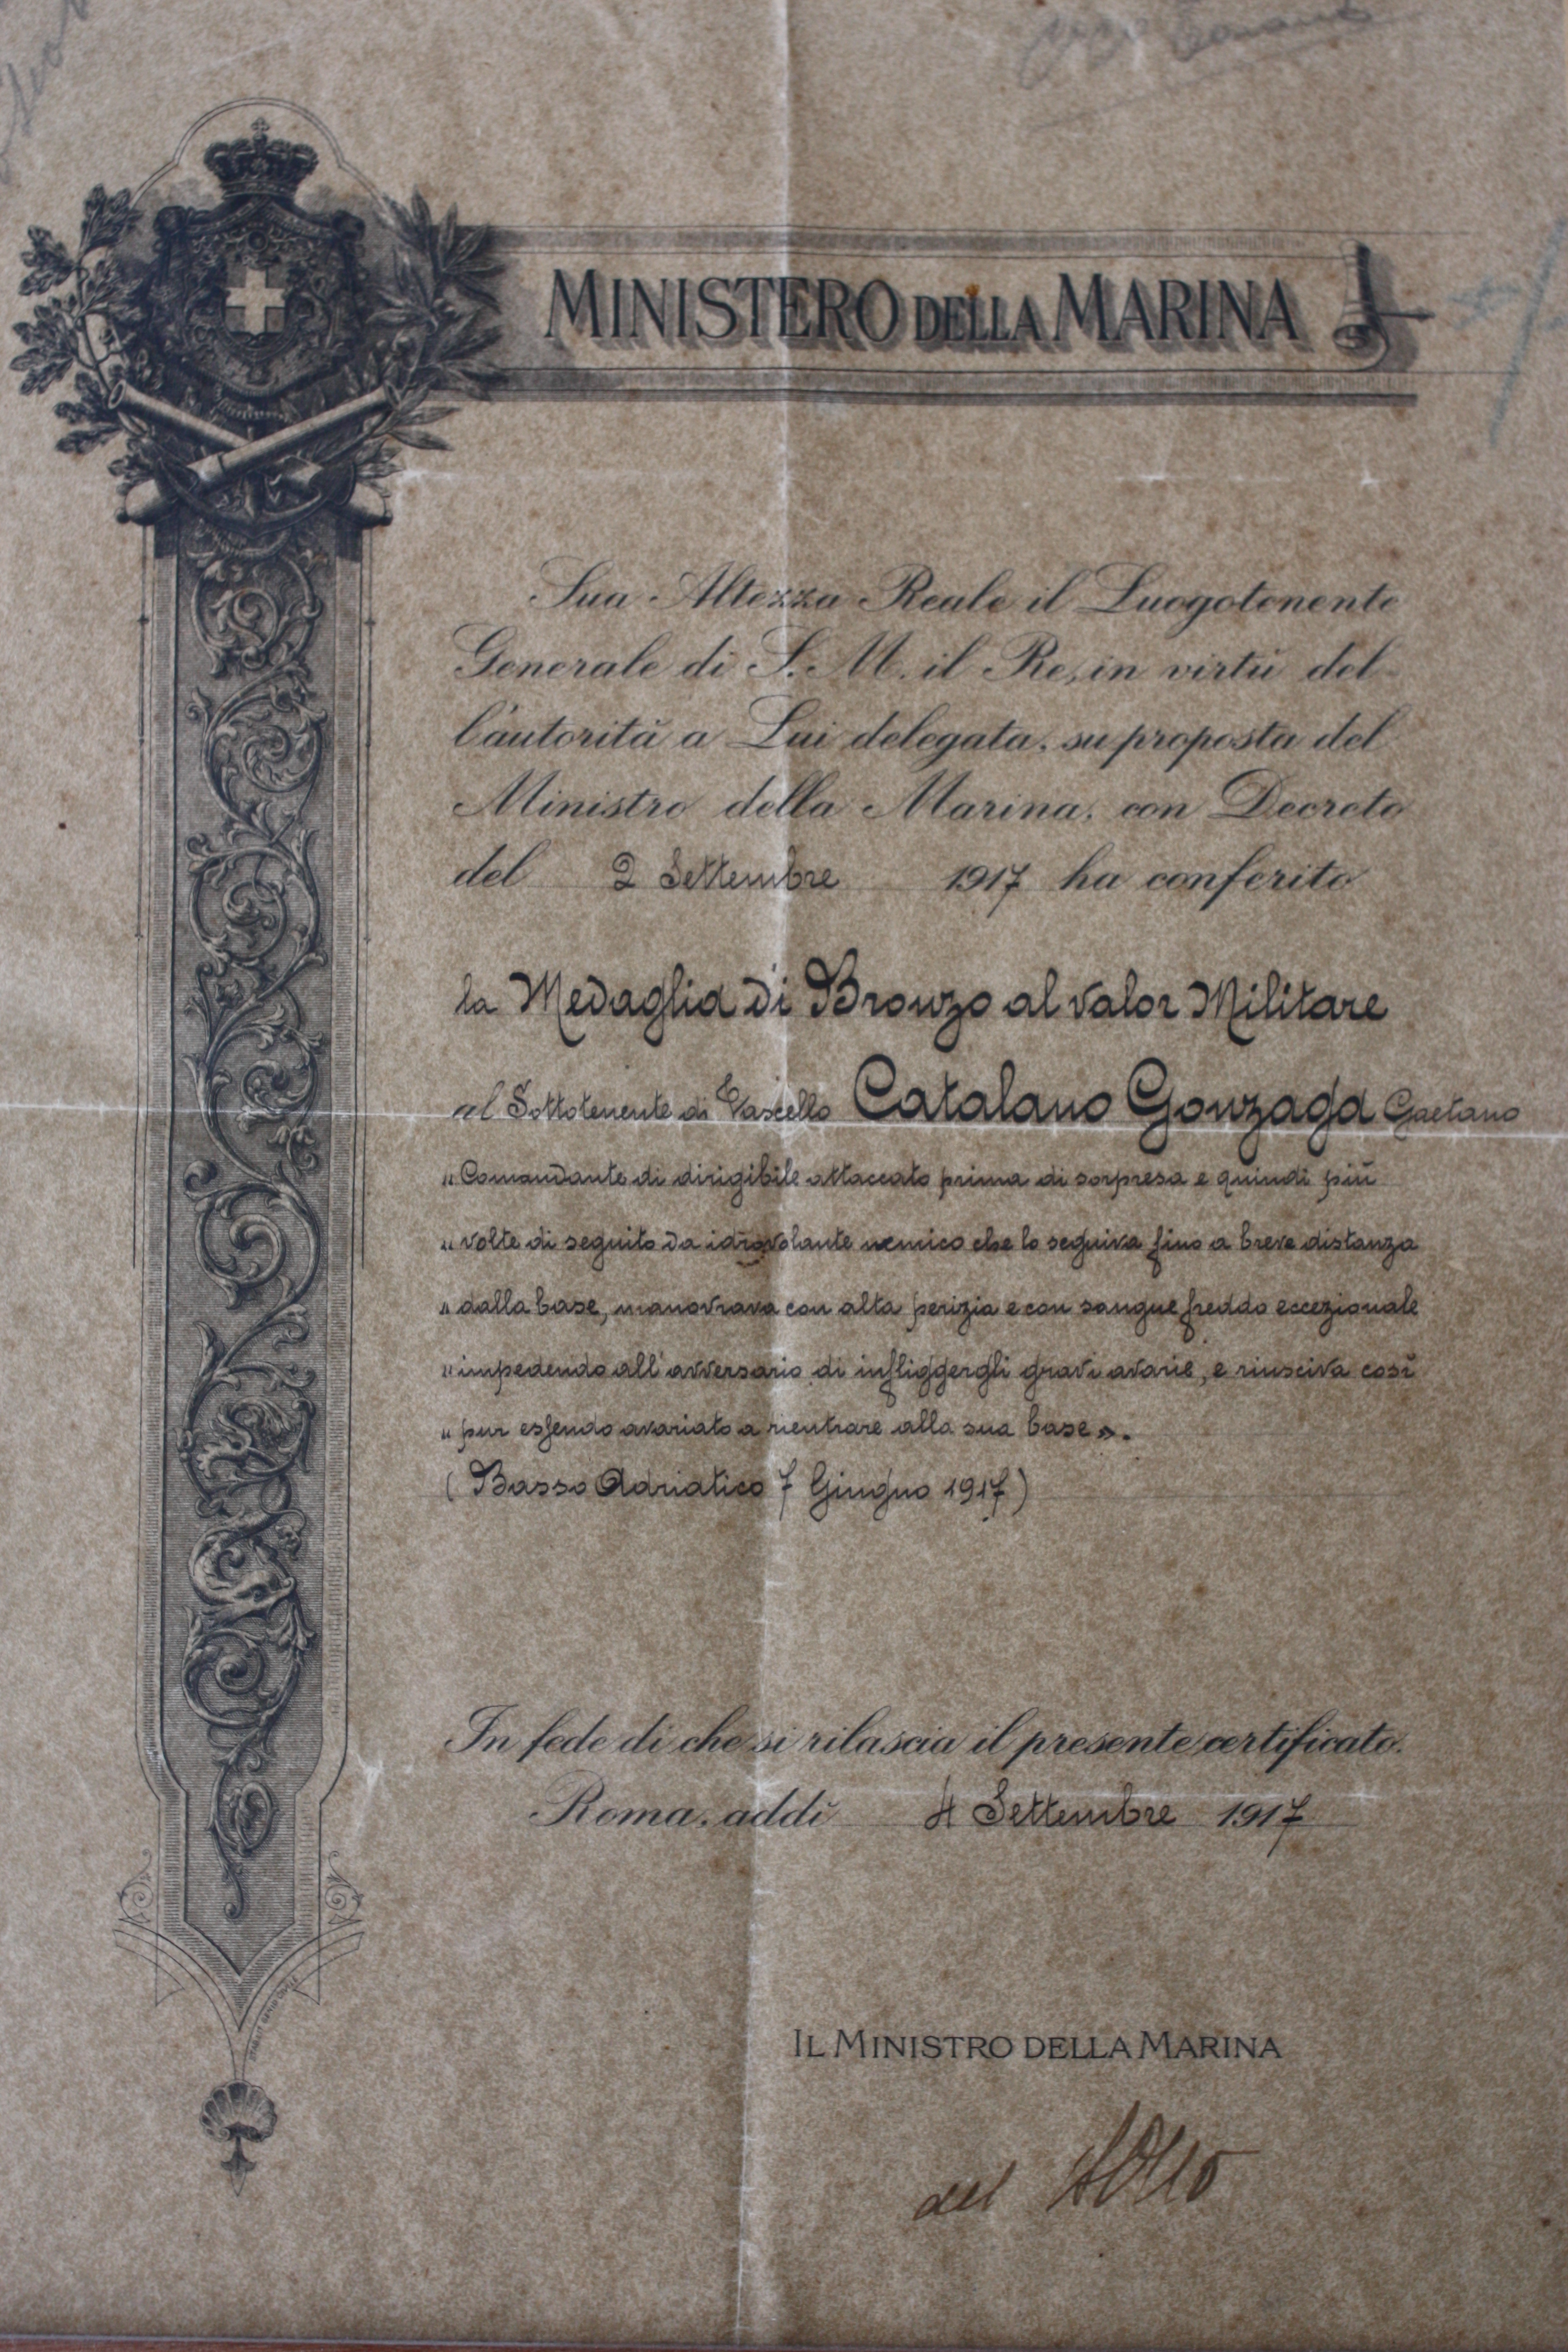 MINISTERO DELLA MARINA
Sua Altezza Reale il Luogotenente
Generale di S. M. il Re, in virtù del-
l'autorità a Lui delegata, su proposta del
Ministro della Marina, con Decreto
del 2 Settembre 1917 ha conferito
la Medaglia di Bronzo al valor Militare
al Sottotenente di Vascello Catalano Gonzaga Gaetano
" Comandante di dirigibile attaccato prima di sorpresa e quindi più
" volte di seguito da idrovolante nemico che lo seguiva fino a breve distanza
" dalla base, manovrava con alta perizia e con sangue freddo eccezionale
" impedendo all'avversario di infliggergli gravi avarie, e riusciva così
" pur essendo avariato a rientrare alla sua base ».
( Basso Adriatico 7 Giugno 1917 )
In fede di che si rilascia il presente certificato.
Roma, addì 4 Settembre 1917
IL MINISTRO DELLA MARINA
del